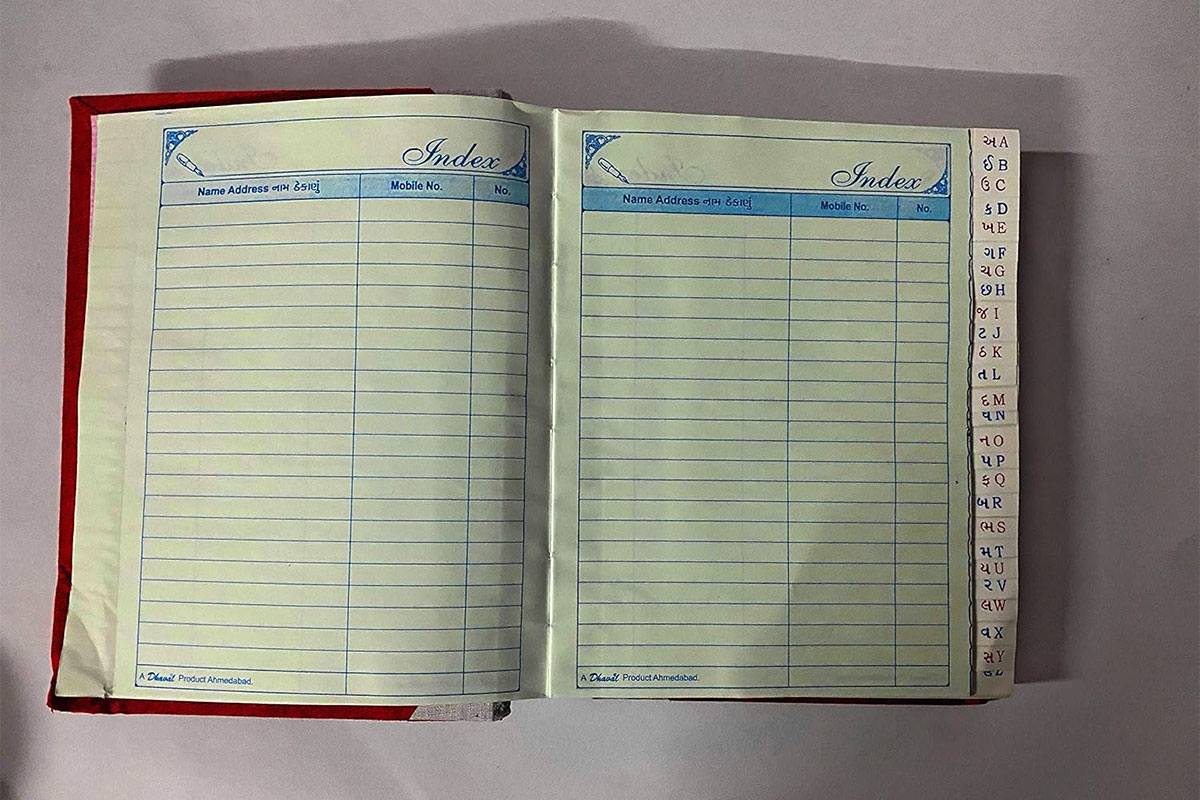 Index
Name Address નામ ઠેકાણું Mobile No. No.
A Dhaval Product Ahmedabad.
Index
Name Address નામ ઠેકાણું Mobile No. No.
A Dhaval Product Ahmedabad.
અ A
ઈ B
ઉ C
ક D
ખ E
ગ F
ચ G
છ H
જ I
ટ J
ઠ K
ત L
દ M
N
ન O
પ P
ફ Q
બ R
ભ S
મ T
ય U
ર V
લ W
વ X
સ Y